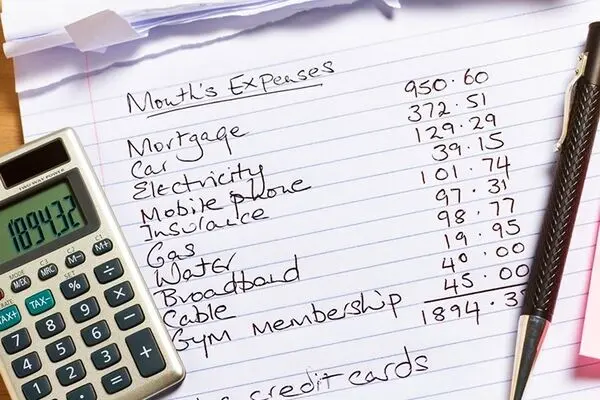 Month's Expenses
Mortgage 950.60
Car 372.51
Electricity 129.29
Mobile phone 39.15
Insurance 101.74
Gas 97.31
Water 98.77
Broadband 19.95
Cable 40.00
Gym membership 45.00
1894.3
credit cards
TWO WAY POWER
1894.32
MODE SET
M/EX MRC M- M+
RATE
TAX+ TAX- % ÷
7 8 9 × −
4 5 6 +
1 2 3
=